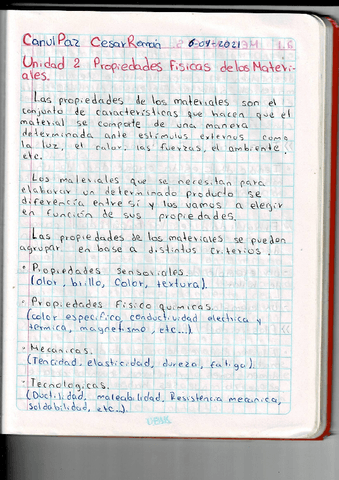 Canul Paz Cesar Román 6-09-2021
Unidad 2 Propiedades Físicas de los Materi-
ales.
Las propiedades de los materiales son el
conjunto de características que hacen que el
material se compote de una manera
determinada ante estímulos externos como
la luz, el calor, las fuerzas, el ambiente,
etc.
Los materiales que se necesitan para
elaborar un determinado producto se
diferencia entre sí y los vamos a elegir
en función de sus propiedades.
Las propiedades de los materiales se pueden
agrupar en base a distintos criterios.
· Propiedades sensoriales.
(olor, brillo, Color, textura).
· Propiedades Físico químicas.
(calor especifico, conductividad electrica y
termica, magnetismo, etc...).
· Mecanicas.
(Tencidad, elasticidad, dureza, fatiga).
· Tecnologicas.
(Ductilidad, maleabilidad, Resistencia mecanica,
soldabilidad, etc...).